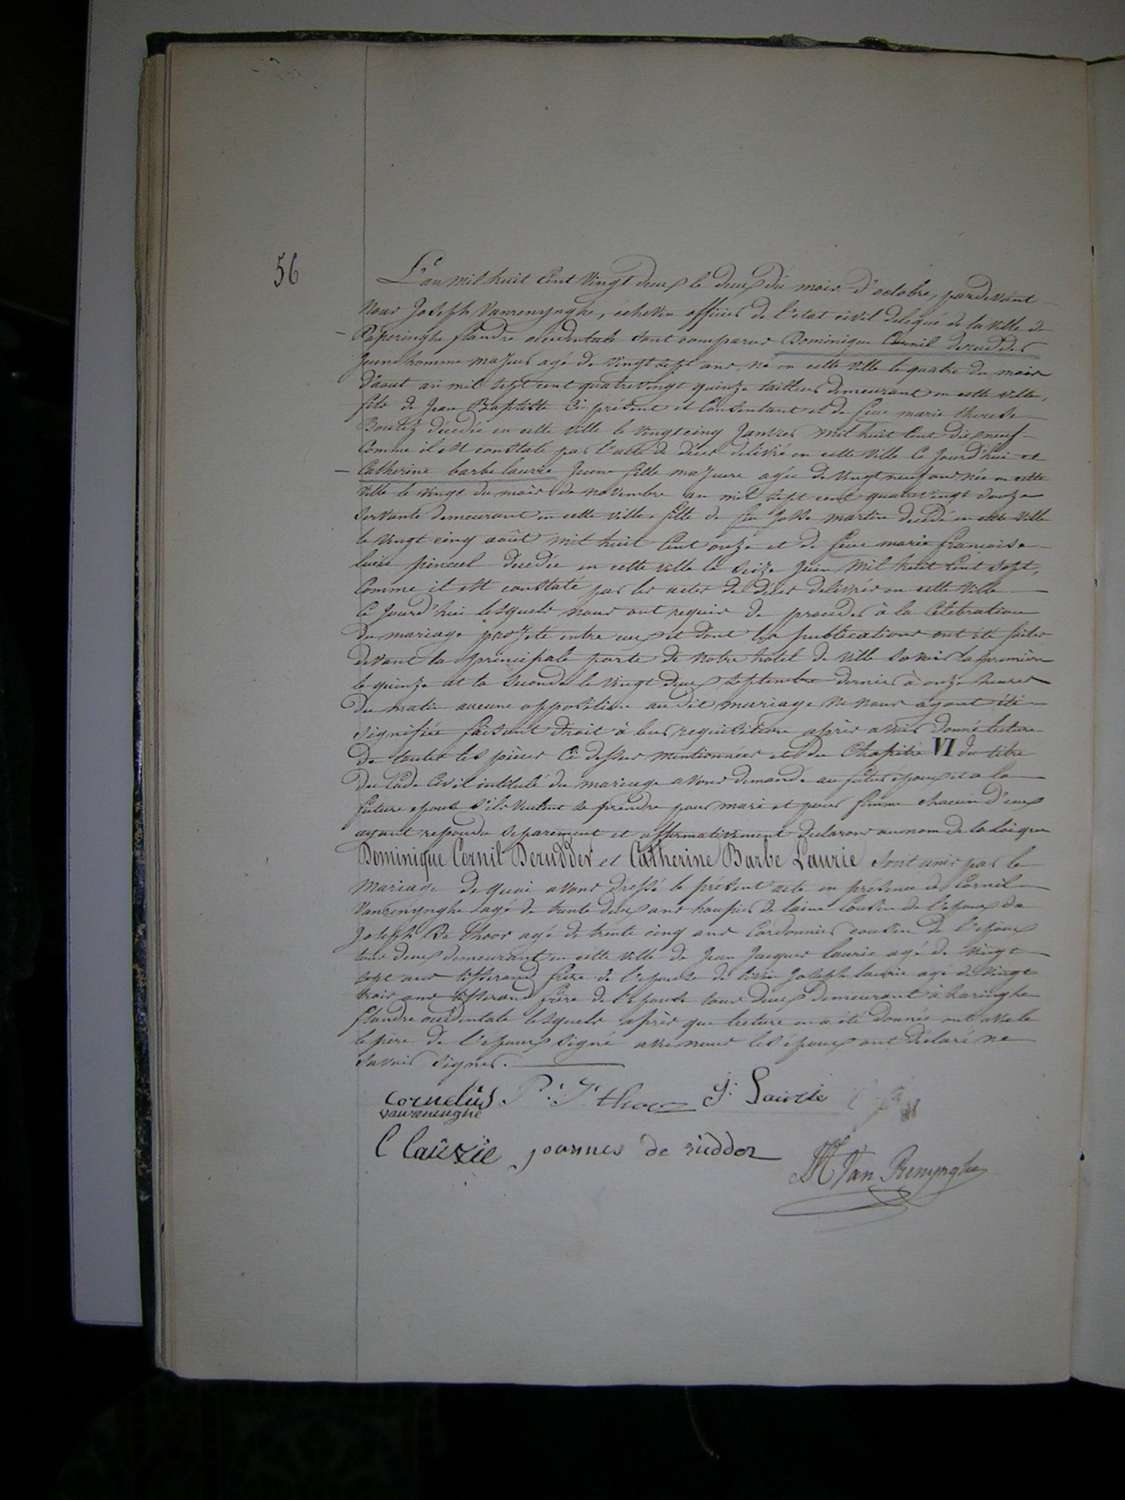 56
L'an mil huit cent vingt deux le deux du mois d'octobre, pardevant
Nous Joseph Vanrenynghe, échevin officier de l'état civil délégué de la ville de
Poperinghe flandre occidentale sont comparus Dominique Cornil Derudder
jeune homme majeur agé de vingt sept ans né en cette ville le quatre du mois
d'août an mil sept cent quatrevingt quinze tailleur demeurant en cette ville,
fils de Jean Baptiste ci présent et consentant et de feue marie therese
décédée en cette ville le vingt cinq Janvier mil huit cent dix neuf
comme il est constaté par l'acte de décès délivré en cette ville ce jourd'hui et
Catherine barbe laurie jeune fille majeure agée de vingt neuf ans née en cette
ville le vingt du mois de novembre an mil sept cent quatrevingt douze
servante demeurant en cette ville fille de feu martin décédé en cette ville
le vingt cinq août mil huit cent onze et de feue marie francoise
décédée en cette ville le seize juin mil huit cent sept,
comme il est constaté par les actes de décès délivrés en cette ville
ce jourd'hui lesquels nous ont requis de procéder à la célébration
du mariage projeté entre eux et dont les publications ont été faites
devant la principale porte de notre hôtel de ville savoir la première
le quinze et la seconde le vingt deux septembre dernier à onze heures
du matin aucune opposition au dit mariage ne nous ayant été
signifiée faisant droit à leur requisition après avoir donné lecture
de toutes les pièces ci dessus mentionnées et du chapitre VI du titre
du Code Civil intitulé du mariage avons demandé au futur époux et a la
future epouse s'ils veulent se prendre pour mari et pour femme chacun d'eux
ayant repondu séparement et affirmativement déclarons au nom de la loi que
Dominique Cornil Derudder et Catherine Barbe Laurie sont unis par le
mariage de quoi avons dressé le présent acte en présence de Cornil
Vanrenynghe agé de trente deux ans de laine cousin de l'époux de
Joseph De Thoor agé de trente cinq ans Cordonnier cousin de l'époux
tous deux demeurant en cette ville de Jean Jacques laurie agé de vingt
sept ans tisserand frère de l'epouse de Joseph laurie agé de vingt
trois ans tisserand frère de l'epouse tous deux demeurant à haringhe
flandre occidentale lesquels après que lecture en a été donnée ont avec le
le pere de l'epoux signé avec nous les époux ont déclaré ne
savoir signer.
Cornelius P: J: thoor J: Laurie
vanreninghe
C Laurie joannes de ridder
Van Renynghe